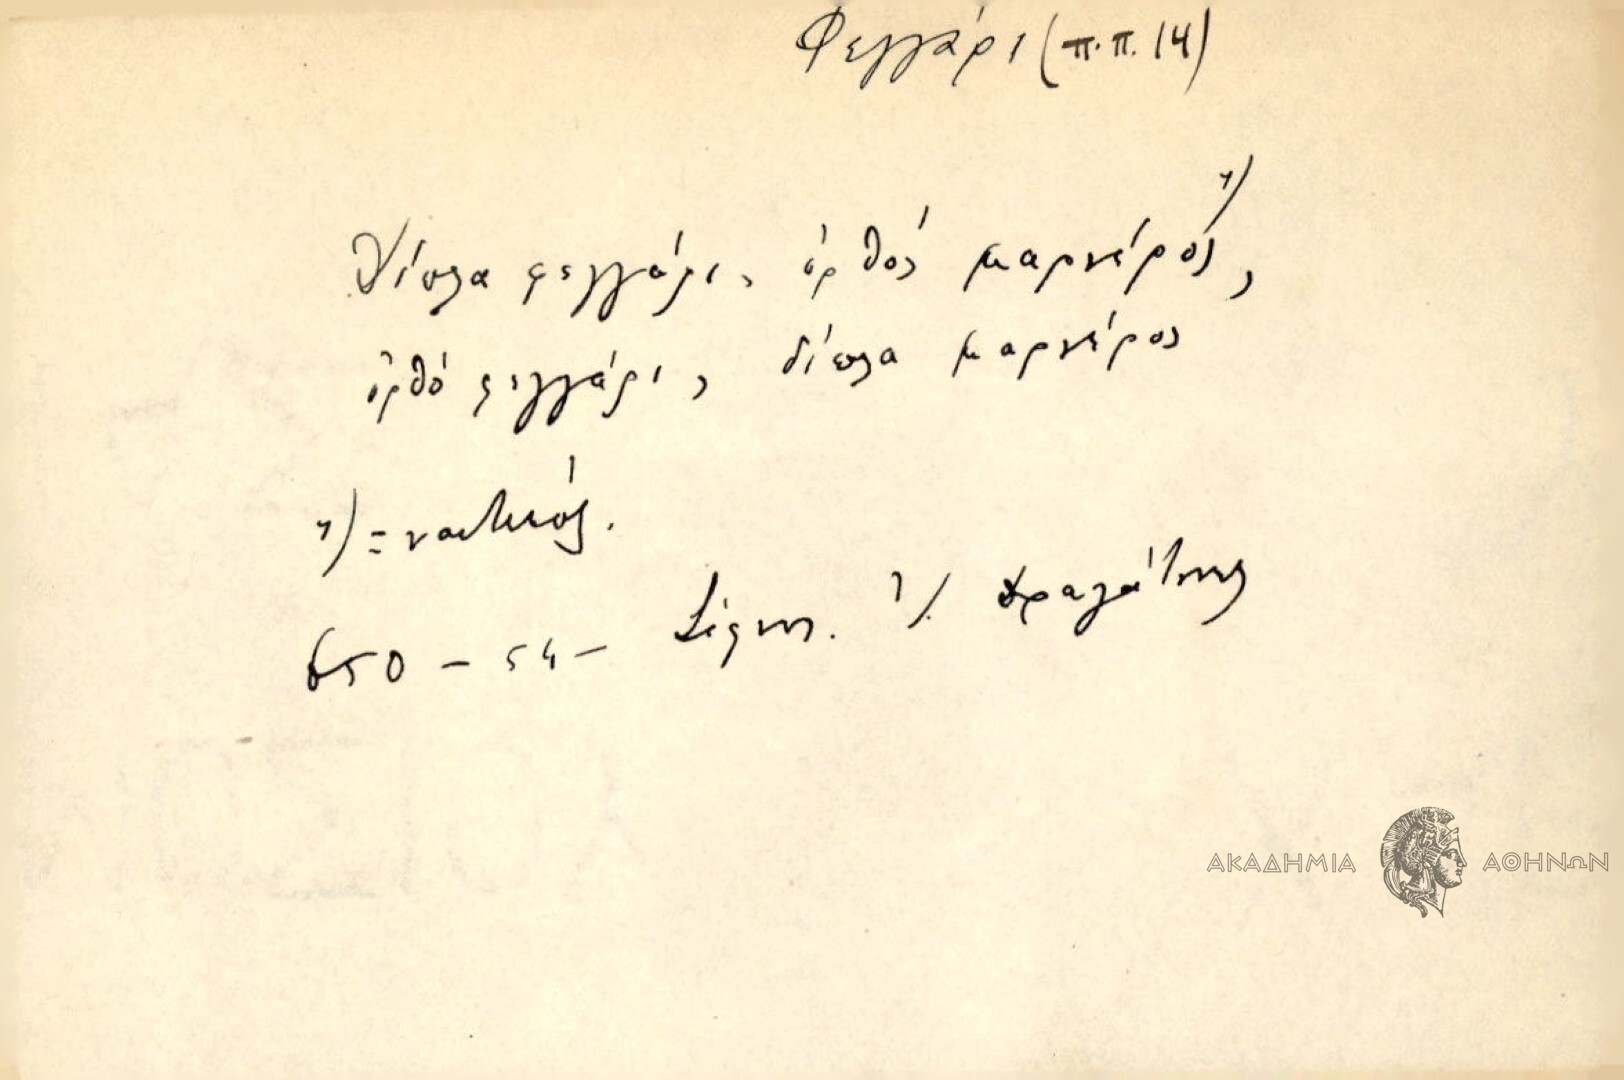 Φεγγάρι (π.π. 14)
Δίπλα φεγγάρι, ὀρθός μαρνέρος 1),
ὀρθό φεγγάρι, δίπλα μαρνέρος
1) = ναυτικός.
650 – 54 – Δραγάτσης
ΑΚΑΔΗΜΙΑ ΑΘΗΝΩΝ